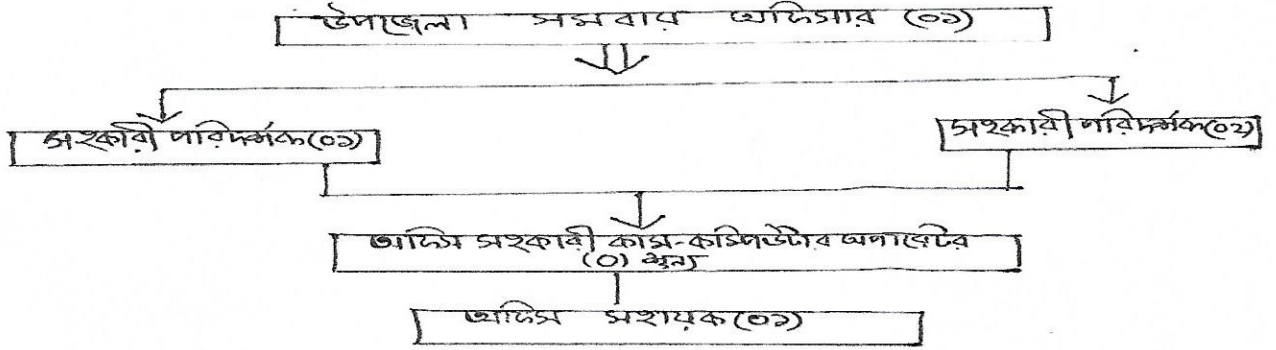 উপজেলা সমবায় অফিসার (০১)
সহকারী পরিদর্শক(০১)
সহকারী পরিদর্শক(০২)
অফিস সহকারী কাম-কম্পিউটার অপারেটর
(০) শূন্য
অফিস সহায়ক(০১)